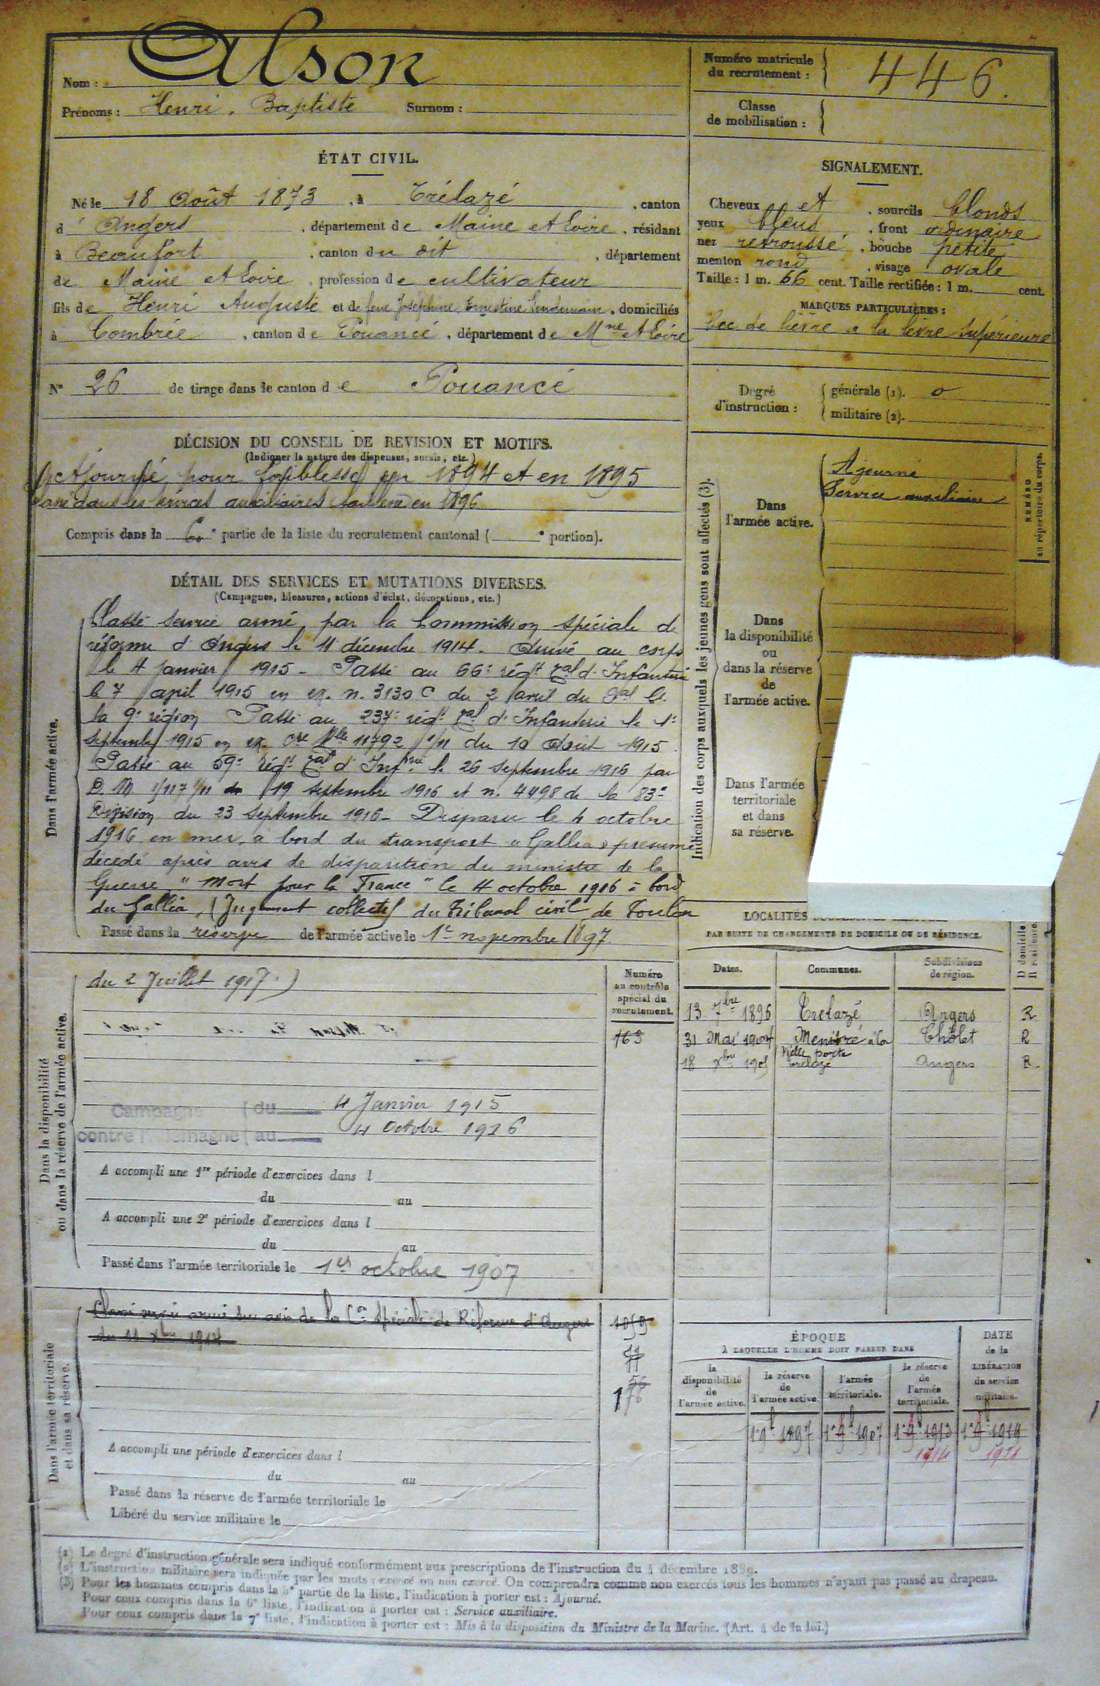 Nom : Alson
Prénoms : Henri, Baptiste Surnom :
Numéro matricule du recrutement : 446.
Classe de mobilisation :
ÉTAT CIVIL.
Né le 18 Août 1873, à Trélazé, canton
d' Angers, département de Maine et Loire, résidant
à Beaufort, canton du dit, département
de Maine et Loire, profession de cultivateur
fils de Henri Auguste et de feue Joséphine Ernestine, domiciliés
à Combrée, canton de Pouancé, département de Mne et Loire
N° 26 de tirage dans le canton de Pouancé
SIGNALEMENT.
Cheveux et, sourcils blonds
yeux bleus, front ordinaire
nez retroussé, bouche petite
menton rond, visage ovale
Taille : 1 m. 66 cent. Taille rectifiée : 1 m. cent.
MARQUES PARTICULIÈRES :
Bec de lièvre à la lèvre supérieure
Degré d'instruction :
générale (1). 0
militaire (2).
DÉCISION DU CONSEIL DE REVISION ET MOTIFS.
(Indiquer la nature des dispenses, sursis, etc.)
Ajourné pour faiblesse en 1894 et en 1895
dans les services auxiliaires en 1896
Compris dans la 6e partie de la liste du recrutement cantonal ( e portion).
DÉTAIL DES SERVICES ET MUTATIONS DIVERSES.
(Campagnes, blessures, actions d'éclat, décorations, etc.)
Dans l'armée active.
Classé service armé par la Commission spéciale de
réforme d'Angers le 11 décembre 1914. Arrivé au corps
le 4 janvier 1915. Passé au 66e régt d'Infanterie
le 7 april 1915 en ex. n. 3130 C du 2 avril du Gal C.
la 9e région Passé au 237e régt d'Infanterie le 1e
Septembre 1915 en ex. 11792 1/11 du 10 Août 1915.
Passé au 59e Régt d'Infrie le 26 Septembre 1916 par
D. M. 19 septembre 1916 et n. 4498 de la 83e
Division du 23 septembre 1916. Disparu le 4 octobre
1916 en mer, à bord du transport "Gallia" présumé
décédé après avis de disparition du ministre de la
Guerre, "Mort pour la France" le 4 octobre 1916 à bord
du Gallia, (Jugement collectif du Tribunal civil de Toulon
Passé dans la réserve de l'armée active le 1er novembre 1897
Indication des corps auxquels les jeunes gens sont affectés (3).
Dans l'armée active.
Ajourné
Service auxiliaire
NUMÉRO au répertoire du corps.
Dans la disponibilité ou dans la réserve de l'armée active.
Dans l'armée territoriale et dans sa réserve.
LOCALITÉS
PAR SUITE DE CHANGEMENTS DE DOMICILE OU DE RÉSIDENCE.
Dates. Communes. Subdivisions de région. D domicile R résidence.
13 7bre 1896 Trelazé Angers R
31 Mai 1904 Menitré Cholet R
18 xbre 1905 trelazé Angers R.
Dans la disponibilité ou dans la réserve de l'armée active.
du 2 Juillet 1917.)
Numéro au contrôle spécial du recrutement.
163
Campagne contre l'Allemagne
du 4 Janvier 1915
au 4 Octobre 1916
A accompli une 1re période d'exercices dans l
du au
A accompli une 2e période d'exercices dans l
du au
Passé dans l'armée territoriale le 1er octobre 1907
Dans l'armée territoriale et dans sa réserve.
Classé service armé sur avis de la Con Spéciale de Réforme d'Angers
du 11 xbre 1914
1059
176
A accompli une période d'exercices dans l
du au
Passé dans la réserve de l'armée territoriale le
Libéré du service militaire le
ÉPOQUE
À LAQUELLE L'HOMME DOIT PASSER DANS
DATE de la LIBÉRATION du service militaire.
la disponibilité de l'armée active.
la réserve de l'armée active.
l'armée territoriale.
la réserve de l'armée territoriale.
1897 1907 1913 1919
1914 1921
(1) Le degré d'instruction générale sera indiqué conformément aux prescriptions de l'instruction du 4 décembre 1889.
(2) L'instruction militaire sera indiquée par les mots : exercé ou non exercé. On comprendra comme non exercés tous les hommes n'ayant pas passé au drapeau.
(3) Pour les hommes compris dans la 5e partie de la liste, l'indication à porter est : Ajourné.
Pour ceux compris dans la 6e liste, l'indication à porter est : Service auxiliaire.
Pour ceux compris dans la 7e liste, l'indication à porter est : Mis à la disposition du Ministre de la Marine. (Art. 4 de la loi.)